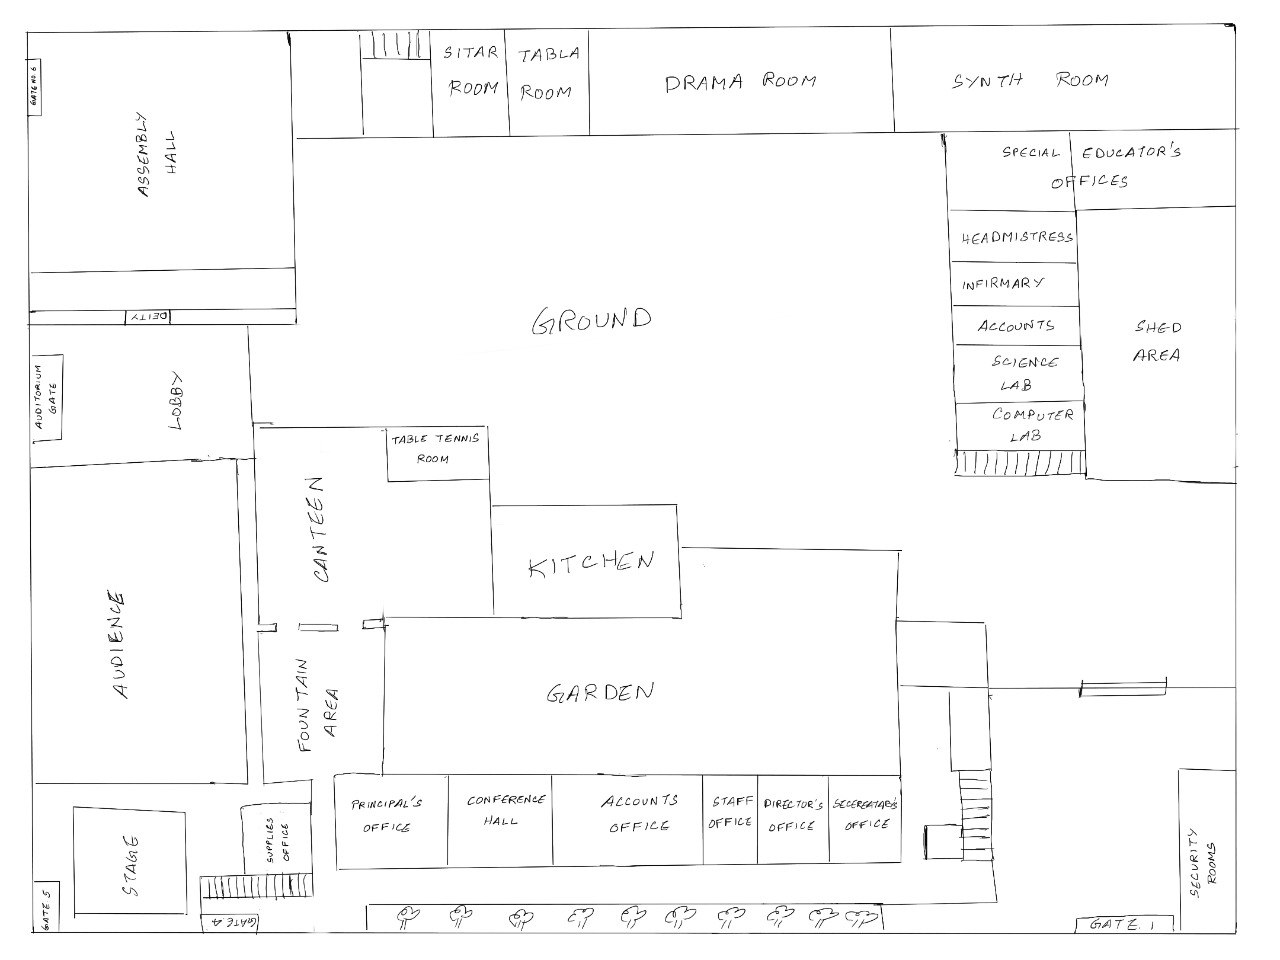 GATE NO. 6
ASSEMBLY
HALL
SITAR
ROOM
TABLA
ROOM
DRAMA ROOM
SYNTH ROOM
SPECIAL EDUCATOR'S
OFFICES
HEADMISTRESS
INFIRMARY
ACCOUNTS
SCIENCE
LAB
COMPUTER
LAB
SHED
AREA
GROUND
DEITY
AUDITORIUM
GATE
LOBBY
TABLE TENNIS
ROOM
CANTEEN
KITCHEN
AUDIENCE
FOUNTAIN
AREA
GARDEN
PRINCIPAL'S
OFFICE
CONFERENCE
HALL
ACCOUNTS
OFFICE
STAFF
OFFICE
DIRECTOR'S
OFFICE
OFFICE
SUPPLIES
OFFICE
STAGE
GATE 5
GATE 4
SECURITY
ROOMS
GATE 1